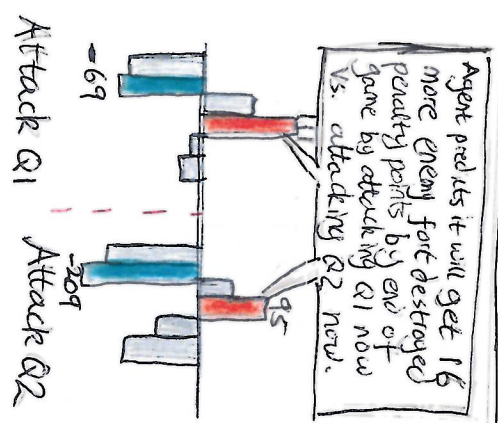 Agent predits it will get 16
more enemy fort destroyed
penalty points by end of
game by attacking Q1 now
vs. attacking Q2 now.
95
-69
-209
Attack Q1
Attack Q2